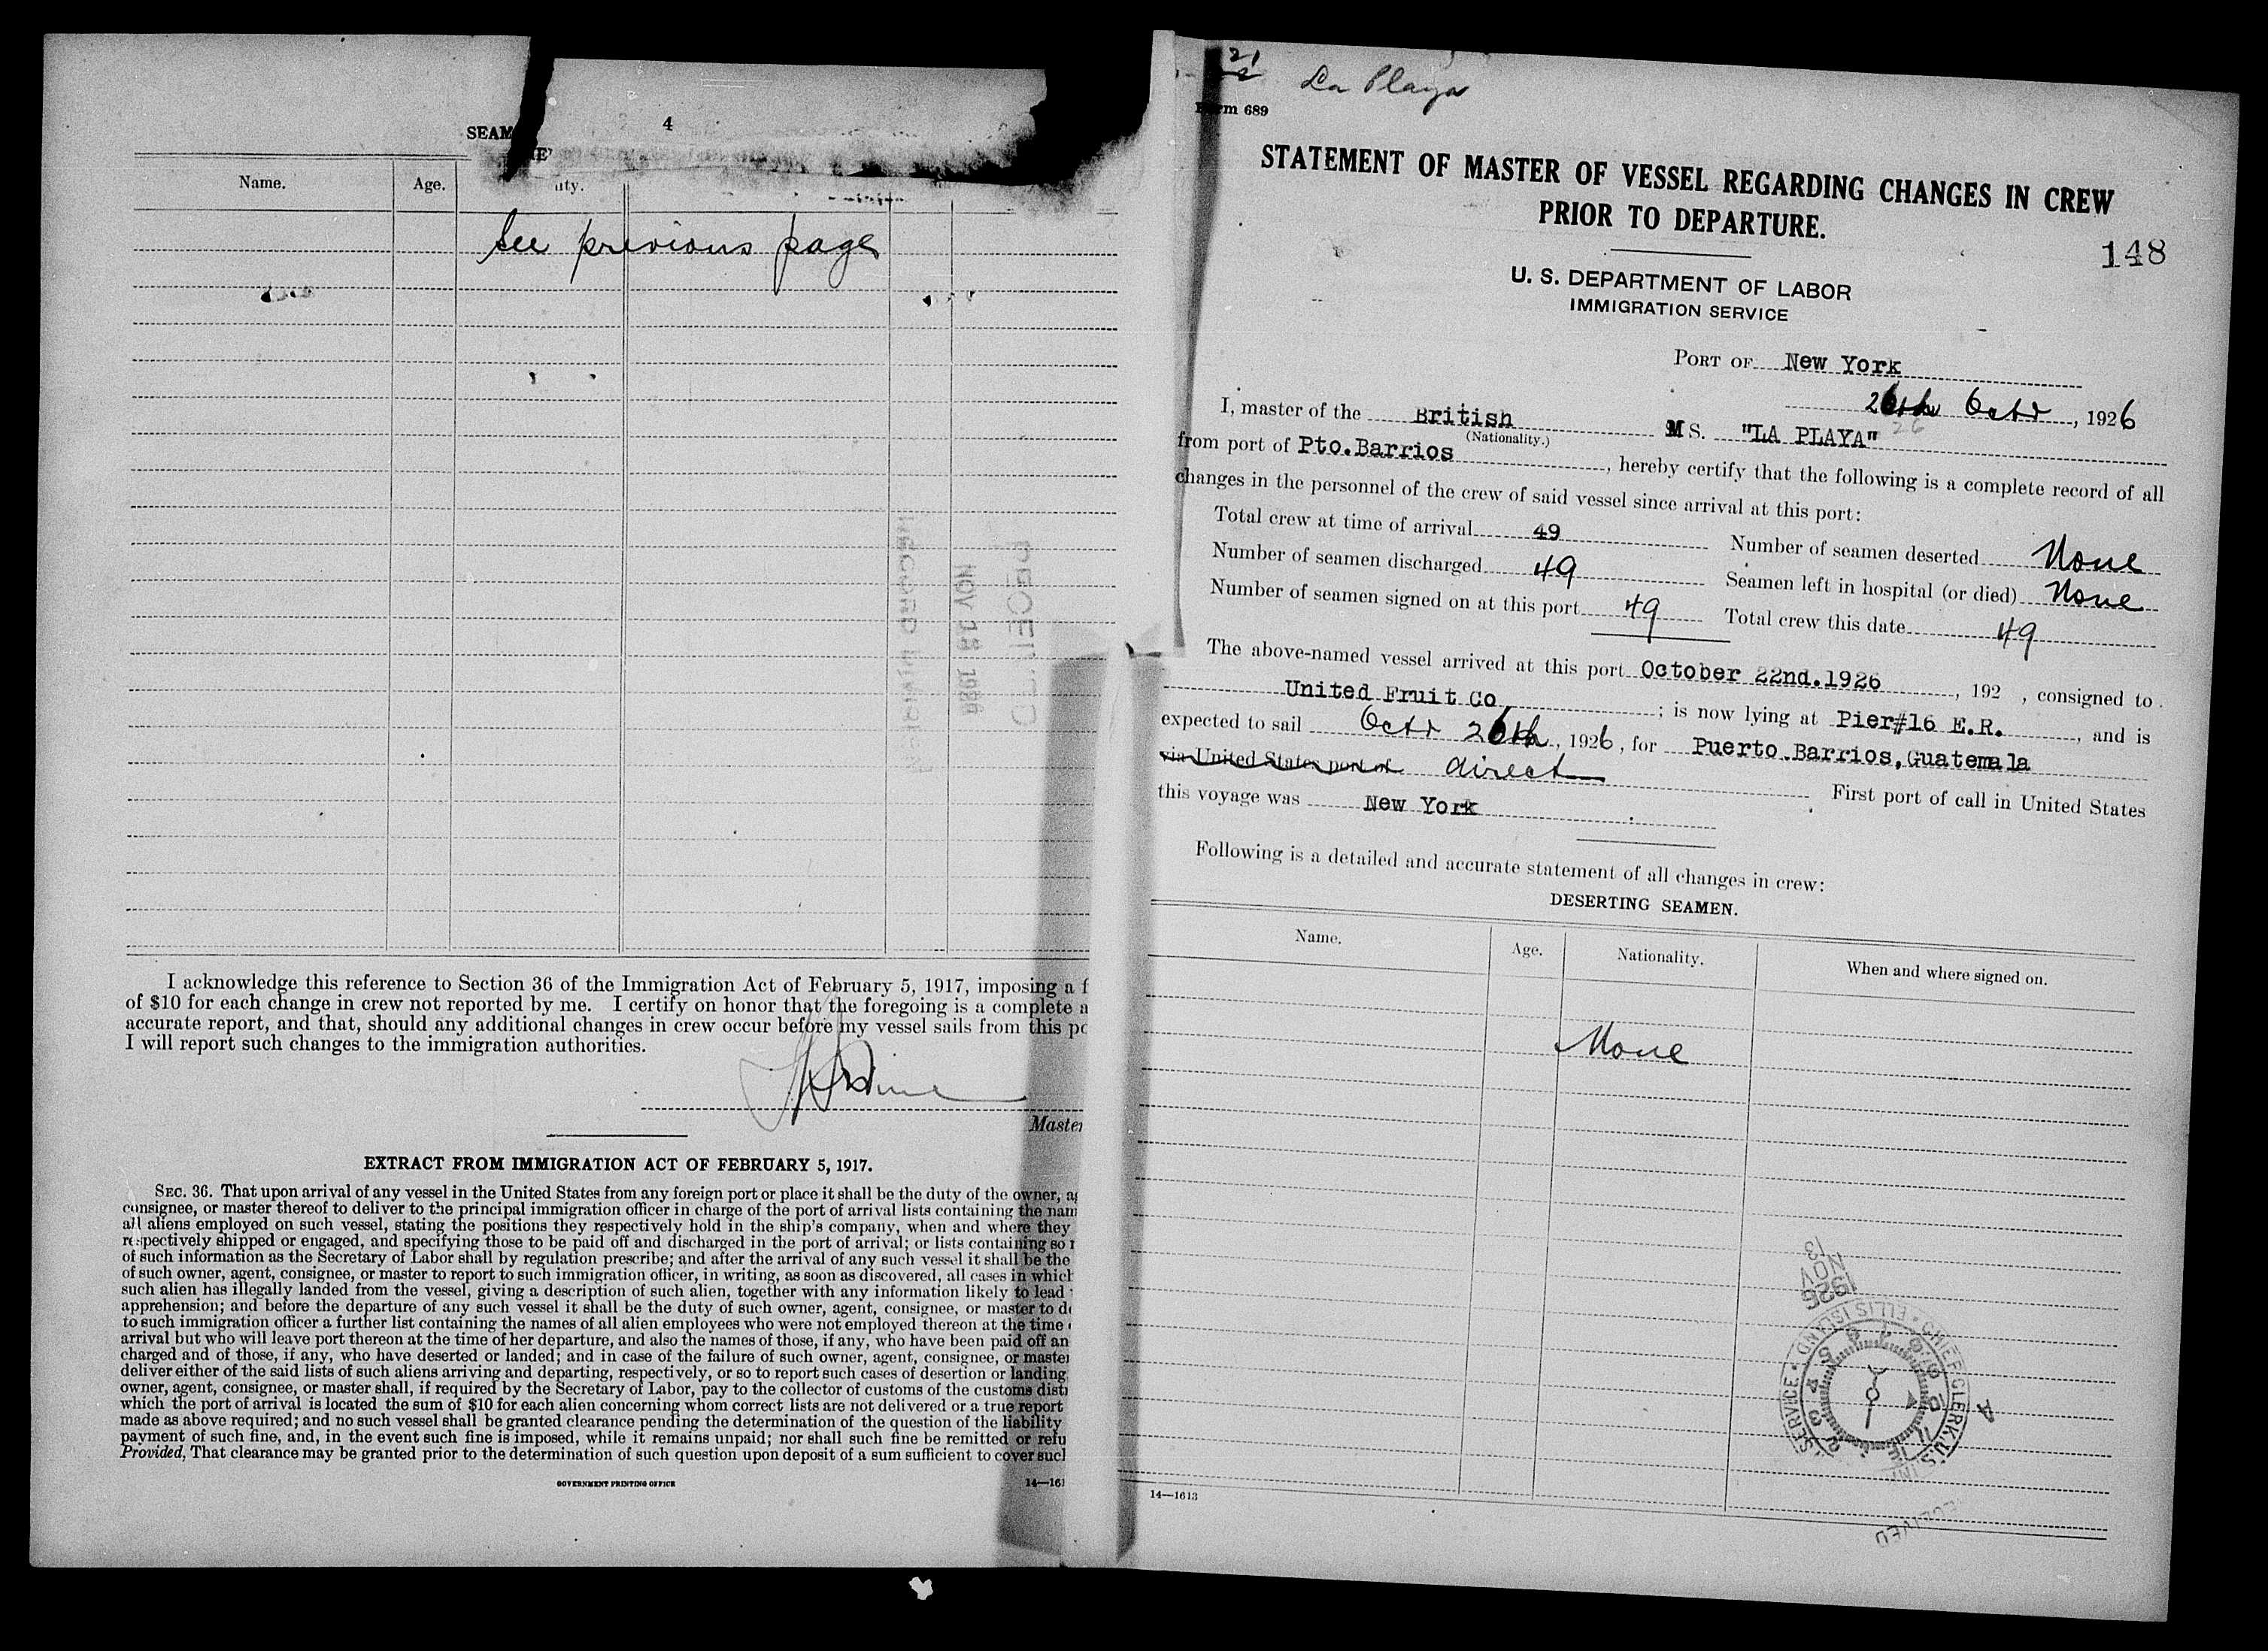 4
SEAM
Name. Age. ity.
See previous page
I acknowledge this reference to Section 36 of the Immigration Act of February 5, 1917, imposing a f
of $10 for each change in crew not reported by me. I certify on honor that the foregoing is a complete a
accurate report, and that, should any additional changes in crew occur before my vessel sails from this po
I will report such changes to the immigration authorities.
Master
EXTRACT FROM IMMIGRATION ACT OF FEBRUARY 5, 1917.
SEC. 36. That upon arrival of any vessel in the United States from any foreign port or place it shall be the duty of the owner, ag
consignee, or master thereof to deliver to the principal immigration officer in charge of the port of arrival lists containing the nam
all aliens employed on such vessel, stating the positions they respectively hold in the ship's company, when and where they
respectively shipped or engaged, and specifying those to be paid off and discharged in the port of arrival; or lists containing so m
of such information as the Secretary of Labor shall by regulation prescribe; and after the arrival of any such vessel it shall be the
of such owner, agent, consignee, or master to report to such immigration officer, in writing, as soon as discovered, all cases in which
such alien has illegally landed from the vessel, giving a description of such alien, together with any information likely to lead
apprehension; and before the departure of any such vessel it shall be the duty of such owner, agent, consignee, or master to de
to such immigration officer a further list containing the names of all alien employees who were not employed thereon at the time
arrival but who will leave port thereon at the time of her departure, and also the names of those, if any, who have been paid off an
charged and of those, if any, who have deserted or landed; and in case of the failure of such owner, agent, consignee, or master
deliver either of the said lists of such aliens arriving and departing, respectively, or so to report such cases of desertion or landing
owner, agent, consignee, or master shall, if required by the Secretary of Labor, pay to the collector of customs of the customs distr
which the port of arrival is located the sum of $10 for each alien concerning whom correct lists are not delivered or a true report
made as above required; and no such vessel shall be granted clearance pending the determination of the question of the liability
payment of such fine, and, in the event such fine is imposed, while it remains unpaid; nor shall such fine be remitted or refu
Provided, That clearance may be granted prior to the determination of such question upon deposit of a sum sufficient to cover such
GOVERNMENT PRINTING OFFICE 14—161
21
2
La Playa
Form 689
STATEMENT OF MASTER OF VESSEL REGARDING CHANGES IN CREW
PRIOR TO DEPARTURE.
148
U. S. DEPARTMENT OF LABOR
IMMIGRATION SERVICE
PORT OF New York
26th Octr, 1926
26
I, master of the British M S. "LA PLAYA"
(Nationality.)
from port of Pto.Barrios, hereby certify that the following is a complete record of all
changes in the personnel of the crew of said vessel since arrival at this port:
Total crew at time of arrival 49 Number of seamen deserted None
Number of seamen discharged 49 Seamen left in hospital (or died) None
Number of seamen signed on at this port 49 Total crew this date 49
The above-named vessel arrived at this port October 22nd.1926, 192 , consigned to
United Fruit Co; is now lying at Pier#16 E.R., and is
expected to sail Octr 26th, 1926, for Puerto Barrios,Guatemala
via United States port of direct First port of call in United States
this voyage was New York
Following is a detailed and accurate statement of all changes in crew:
DESERTING SEAMEN.
Name. Age. Nationality. When and where signed on.
None
1926
NOV
13
CHIEF CLERK U.S. IMM SERVICE • ELLIS ISLAND •
14—1613